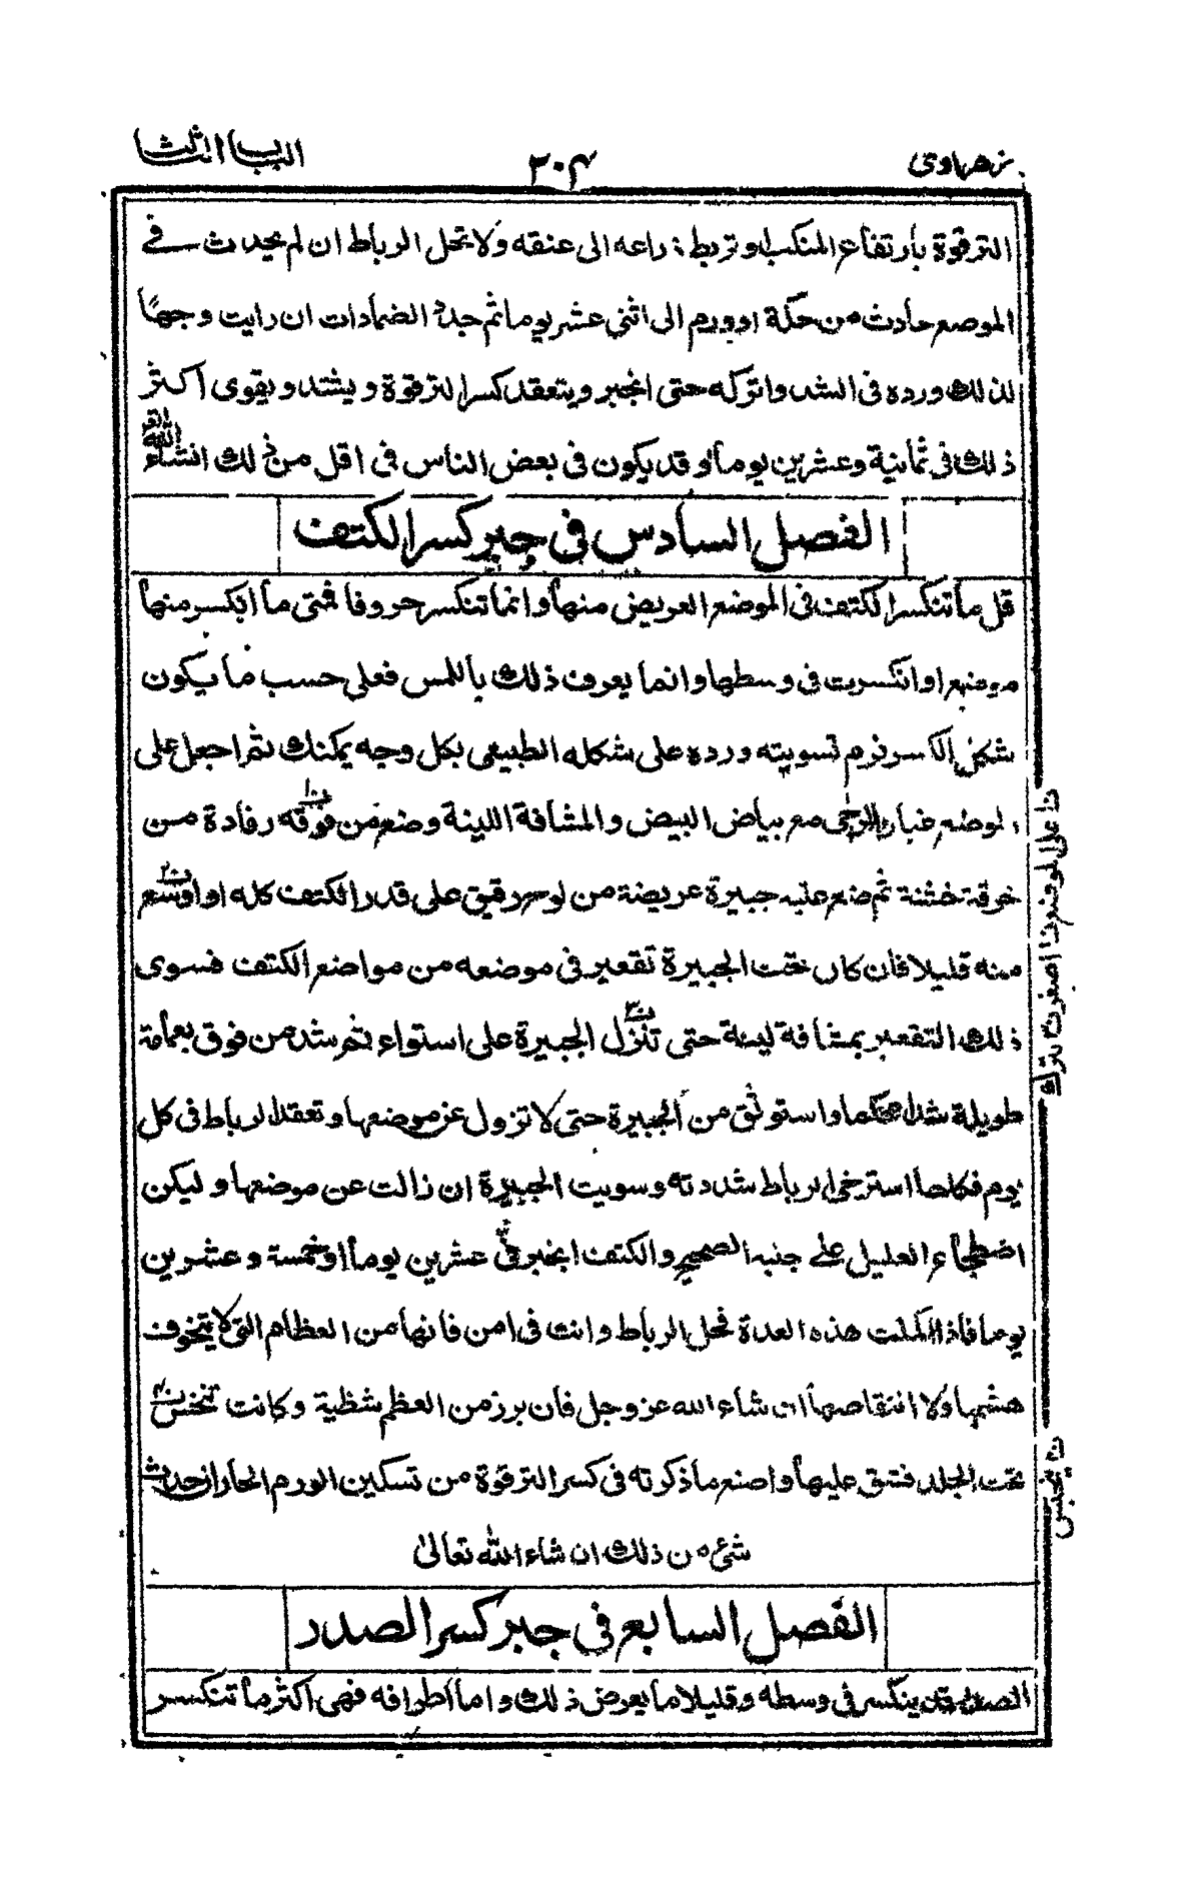 زهراوي ٣٠٤ الباب الثالث
الترقوة بارتفاع المنكب او تربط ذراعه الى عنقه ولا تحل الرباط ان لم يحدث في
الموضع حادث من حكة او ورم الى اثنى عشر يوما ثم جدد الضمادات ان رايت وجها
لذلك ورده فى الشد واتركه حتى انجبر ويتعقد كسر الترقوة ويشتد ويقوى اكثر
ذلك فى ثمانية وعشرين يوما وقد يكون فى بعض الناس فى اقل من ذلك انشاء الله
الفصل السادس فى جبر كسر الكتف
قل ما تنكسر الكتف فى الموضع العريض منها وانما تنكسر حروفا فمتى ما انكسر منها
موضع او انكسرت فى وسطها وانما يعرف ذلك باللمس فعلى حسب ما يكون
شكل الكسر فرم تسويته ورده على شكله الطبيعى بكل وجه يمكنك ثم اجعل على
الموضع غبار الرحى مع بياض البيض والمشافة اللينة وضع من فوقه رفادة من
خرقة خشنة ثم ضع عليه جبيرة عريضة من لوح رقيق على قدر الكتف كله او اوسع
منه قليلا فان كان تحت الجبيرة تقعير فى موضعه من مواضع الكتف فسوى
ذلك التقعير بمشافة لينة حتى تنزل الجبيرة على استواء ثم شد من فوق بعمامة
طويلة شدا محكما واستوثق من الجبيرة حتى لا تزول عن موضعها وتعقد الرباط فى كل
يوم فكلما استرخى الرباط شددته وسويت الجبيرة ان زالت عن موضعها وليكن
اضطجاع العليل على جنبه الصحيح والكتف ينجبر فى عشرين يوما او خمسة وعشرين
يوما فاذا كملت هذه العدة فحل الرباط وانت فى امن فانها من العظام التى لا يتخوف
هشمها ولا انتقاصها ان شاء الله عز وجل فان برز من العظم شظية وكانت تنخس
تحت الجلد فشق عليها واصنع ما ذكرته فى كسر الترقوة من تسكين الورم الحار ان حدث
شئ من ذلك ان شاء الله تعالى
الفصل السابع فى جبر كسر الصدر
الصدر قد ينكسر فى وسطه وقليلا ما يعرض ذلك واما اطرافه فهى اكثر ما تنكسر